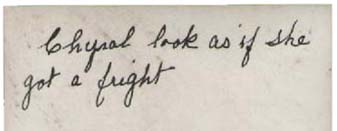 Chysal look as if she
got a fright